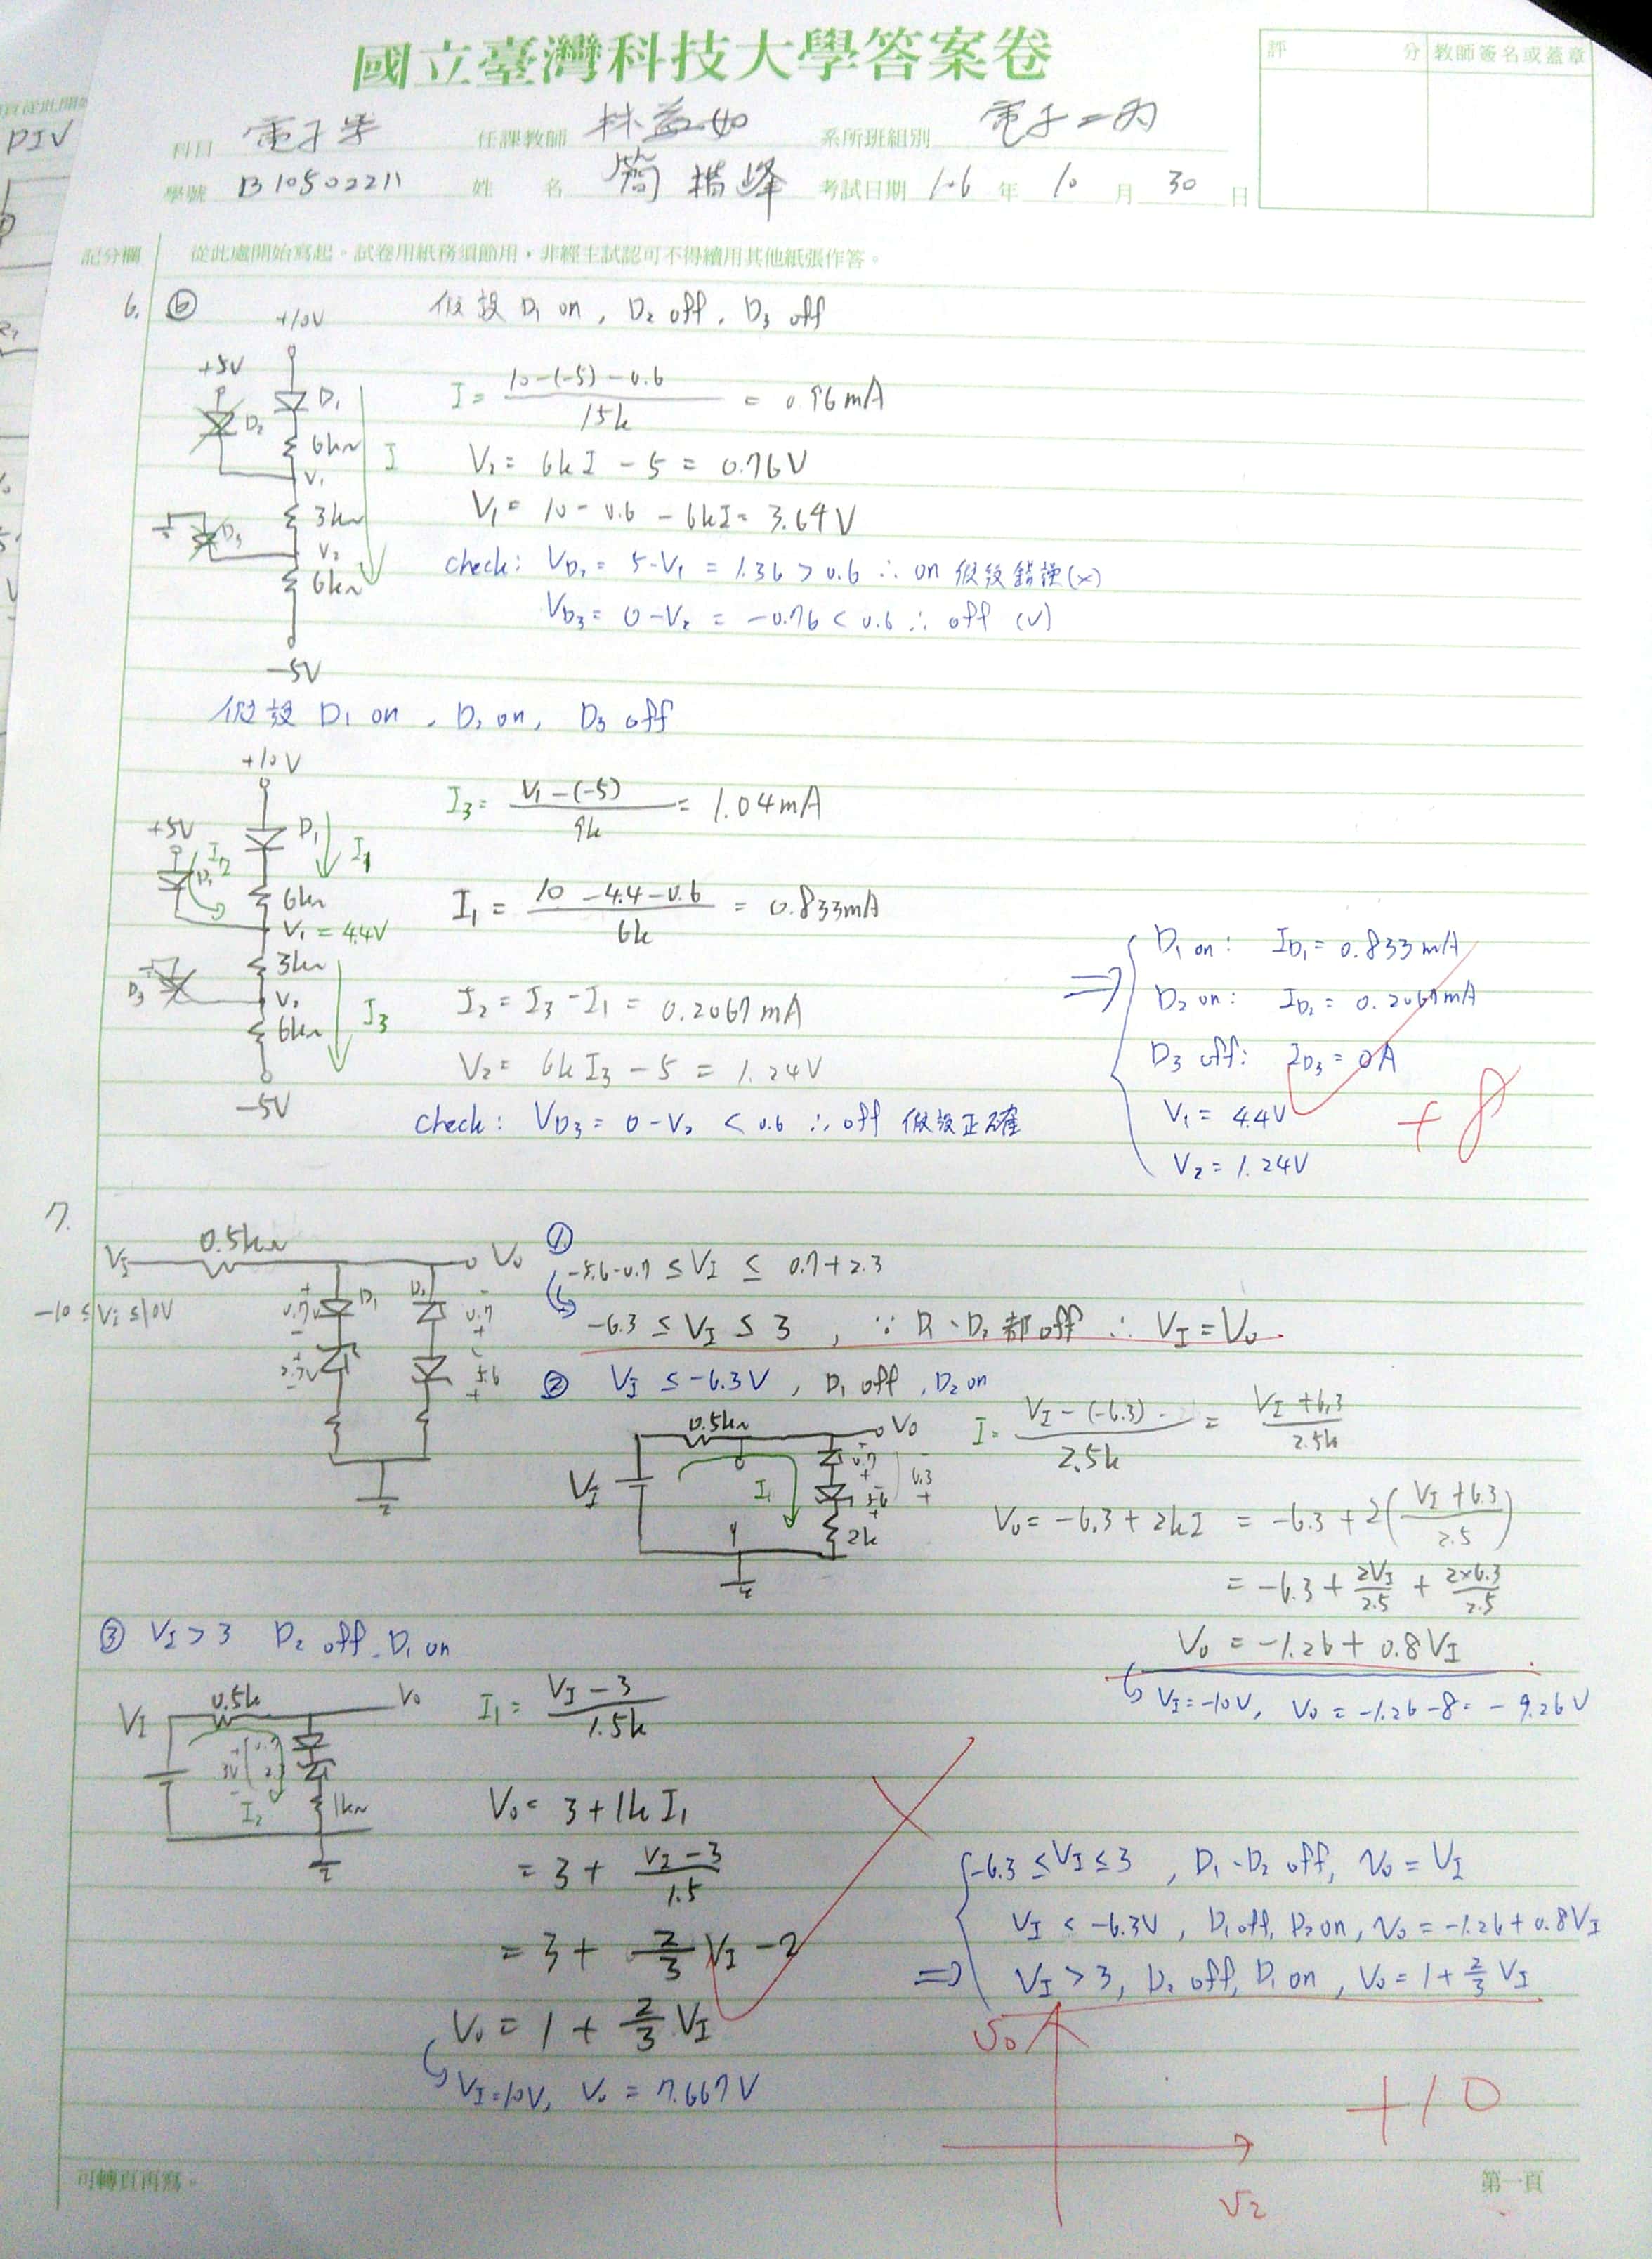 國立臺灣科技大學答案卷
評 分 教師簽名或蓋章
科目 電子學 任課教師 林益如 系所班組別 電子二丙
學號 B10502211 姓 名 簡 峰 考試日期 106 年 10 月 30 日
記分欄 從此處開始寫起。試卷用紙務須節用,非經主試認可不得續用其他紙張作答。
DIV
6. ⓑ 假設 D1 on, D2 off, D3 off
+10V
+5V
D1
D2
6kΩ
I
V1
3kΩ
D3
V2
6kΩ
-5V
I = (10-(-5)-0.6)/15k = 0.96mA
V2 = 6kI - 5 = 0.76V
V1 = 10 - 0.6 - 6kI = 3.64V
check: VD2 = 5-V1 = 1.36 > 0.6 ∴ on 假設錯誤(x)
VD3 = 0-V2 = -0.76 < 0.6 ∴ off (v)
假設 D1 on, D2 on, D3 off
+10V
+5V
D1
I1
I2
D2
6kΩ
V1 = 4.4V
3kΩ
D3
V2
6kΩ
I3
-5V
I3 = (V1-(-5))/9k = 1.04mA
I1 = (10-4.4-0.6)/6k = 0.833mA
I2 = I3 - I1 = 0.2067mA
V2 = 6kI3 - 5 = 1.24V
check: VD3 = 0-V2 < 0.6 ∴ off 假設正確
⇒ D1 on: ID1 = 0.833mA
D2 on: ID2 = 0.2067mA
D3 off: ID3 = 0A
V1 = 4.4V
V2 = 1.24V
+8
7.
VI 0.5kΩ Vo
-10 ≤ Vi ≤ 10V
+ 0.7V - D1
D2 - 0.7 +
+ 2.3V -
- 5.6 +
①
-5.6-0.7 ≤ VI ≤ 0.7+2.3
-6.3 ≤ VI ≤ 3, ∵ D1、D2 都off ∴ VI = Vo.
② VI ≤ -6.3V, D1 off, D2 on
0.5kΩ Vo
VI
I1
0.7
5.6
6.3
2k
I = (VI-(-6.3))/2.5k = (VI+6.3)/2.5k
Vo = -6.3 + 2kI = -6.3 + 2((VI+6.3)/2.5)
= -6.3 + 2VI/2.5 + 2×6.3/2.5
Vo = -1.26 + 0.8VI
VI = -10V, Vo = -1.26-8 = -9.26V
③ VI > 3 D2 off, D1 on
0.5k Vo
VI
3V
I2
1kΩ
I1 = (VI-3)/1.5k
Vo = 3 + 1kI1
= 3 + (VI-3)/1.5
= 3 + 2/3 VI - 2
Vo = 1 + 2/3 VI
VI = 10V, Vo = 7.667V
-6.3 ≤ VI ≤ 3, D1、D2 off, Vo = VI
VI < -6.3V, D1 off, D2 on, Vo = -1.26+0.8VI
⇒ VI > 3, D2 off, D1 on, Vo = 1 + 2/3 VI
Vo
+10
可轉頁再寫。
第一頁